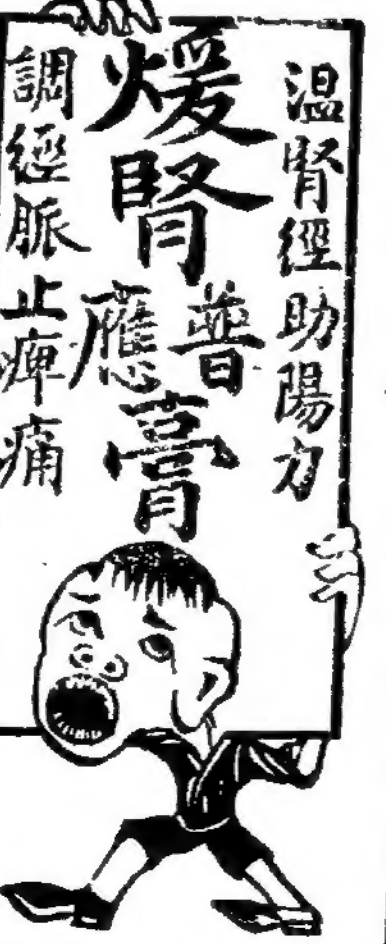 温腎徑助陽力
煖腎普應膏
調經脈止痺痛